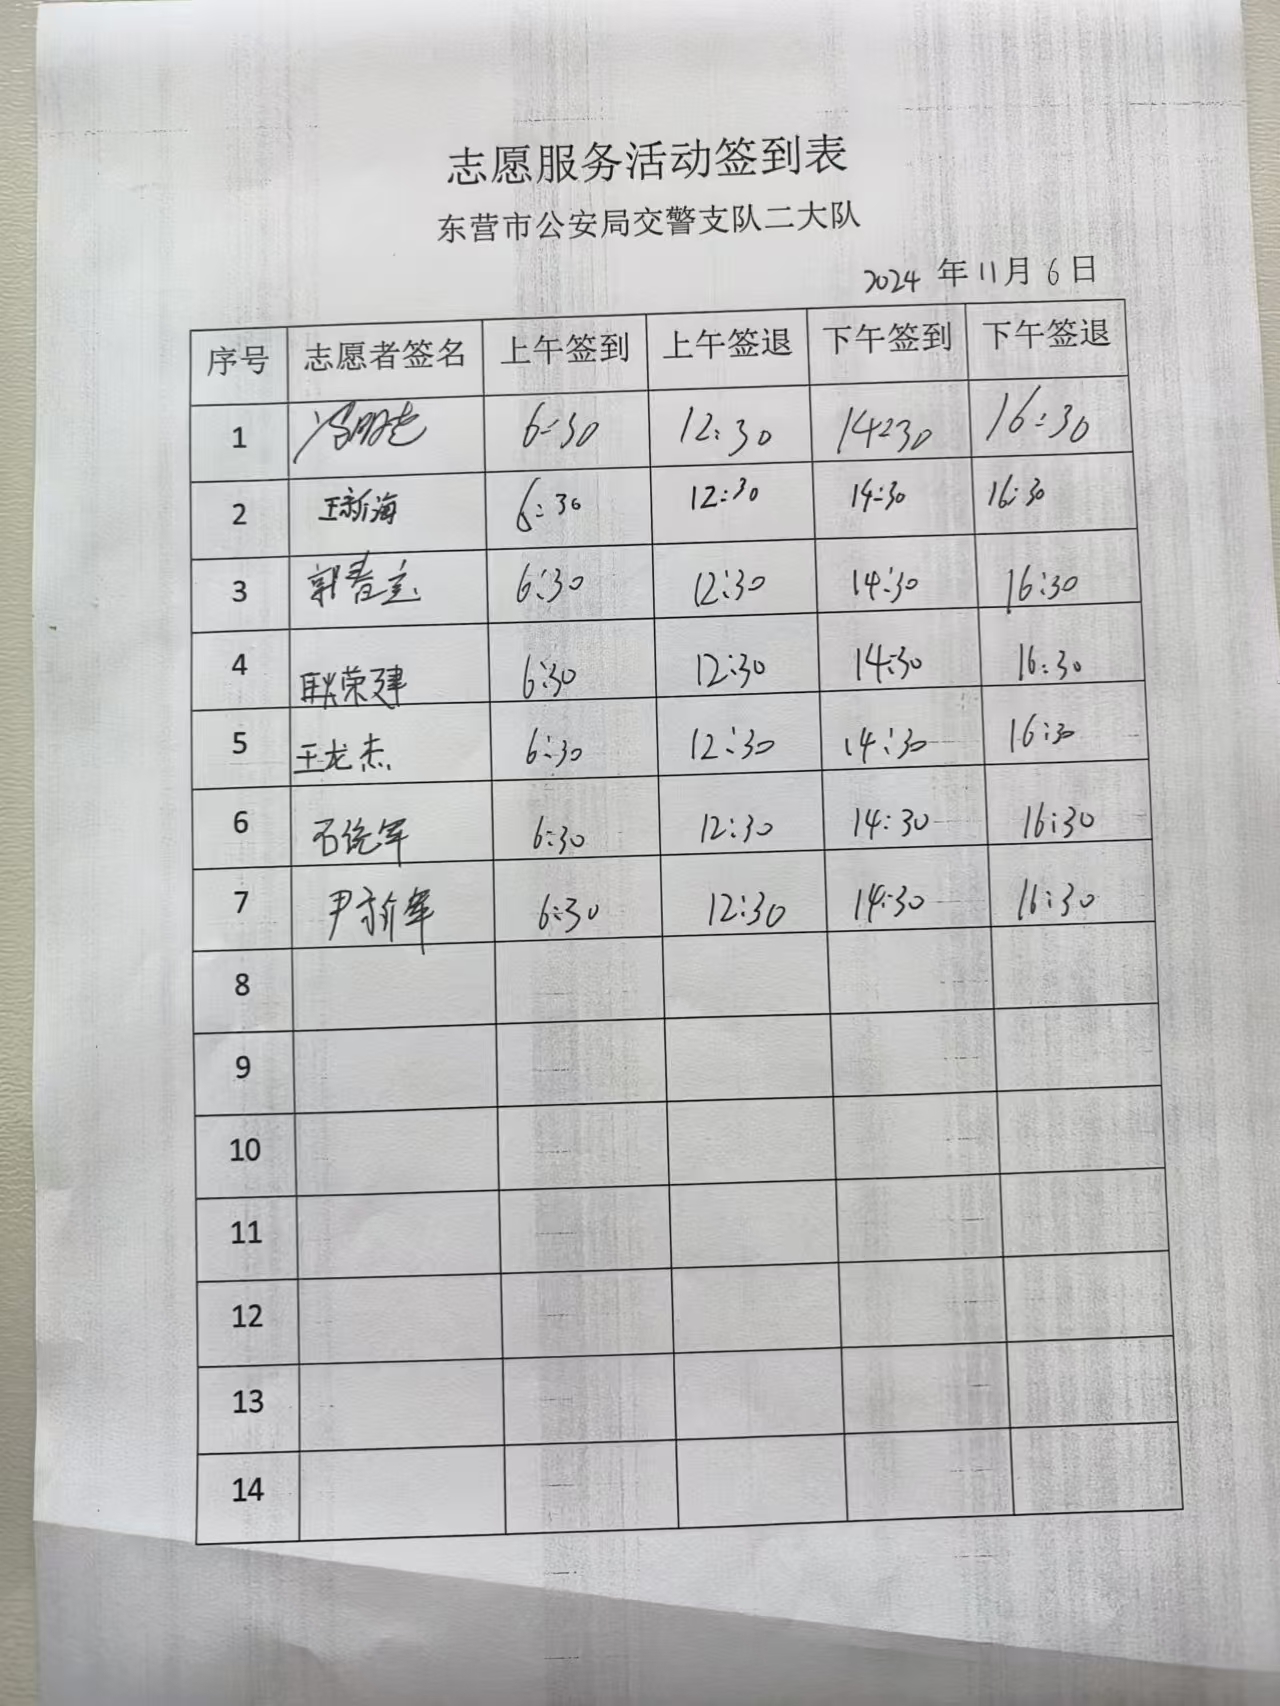 志愿服务活动签到表
东营市公安局交警支队二大队
2024 年 11 月 6 日
序号 志愿者签名 上午签到 上午签退 下午签到 下午签退
1 6:30 12:30 14:30 16:30
2 王新海 6:30 12:30 14:30 16:30
3 郭春宝 6:30 12:30 14:30 16:30
4 耿荣建 6:30 12:30 14:30 16:30
5 王龙杰 6:30 12:30 14:30 16:30
6 石统军 6:30 12:30 14:30 16:30
7 6:30 12:30 14:30 16:30
8
9
10
11
12
13
14